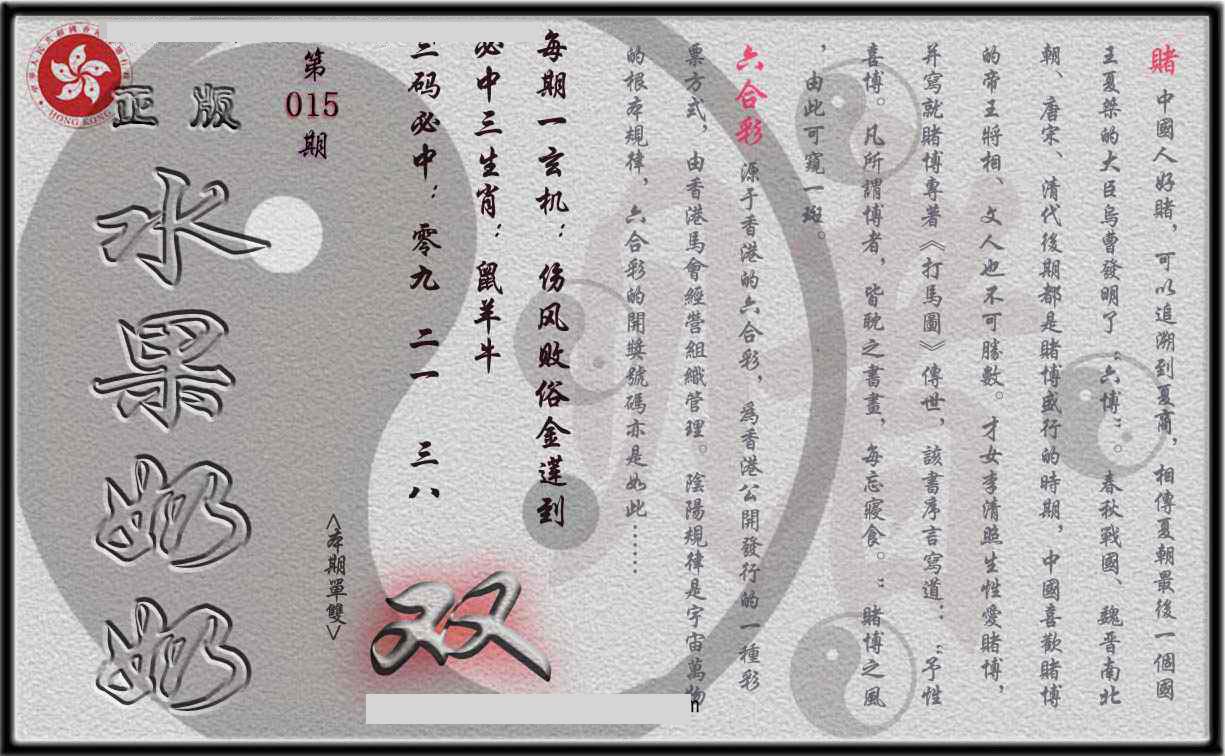 賭 中國人好賭，可以追溯到夏商，相傳夏朝最後一個國
王夏桀的大臣烏曹發明了“六博”。春秋戰國、魏晋南北
朝、唐宋、清代後期都是賭博盛行的時期，中國喜歡賭博
的帝王將相、文人也不可勝數。才女李清照生性愛賭博，
并寫就賭博專著《打馬圖》傳世，該書序言寫道：“予性
喜博。凡所謂博者，皆耽之書晝，每忘寢食。”賭博之風
，由此可窺一斑。
六合彩 源于香港的六合彩，爲香港公開發行的一種彩
票方式，由香港馬會經營組織管理。陰陽規律是宇宙萬物
的根本規律，六合彩的開獎號碼亦是如此……
每期一玄机：伤风败俗金莲到
必中三生肖：鼠羊牛
三码必中：零九 二一 三八
第
015
期
正版
水果奶奶
<本期單雙>
双
HONG KONG
n